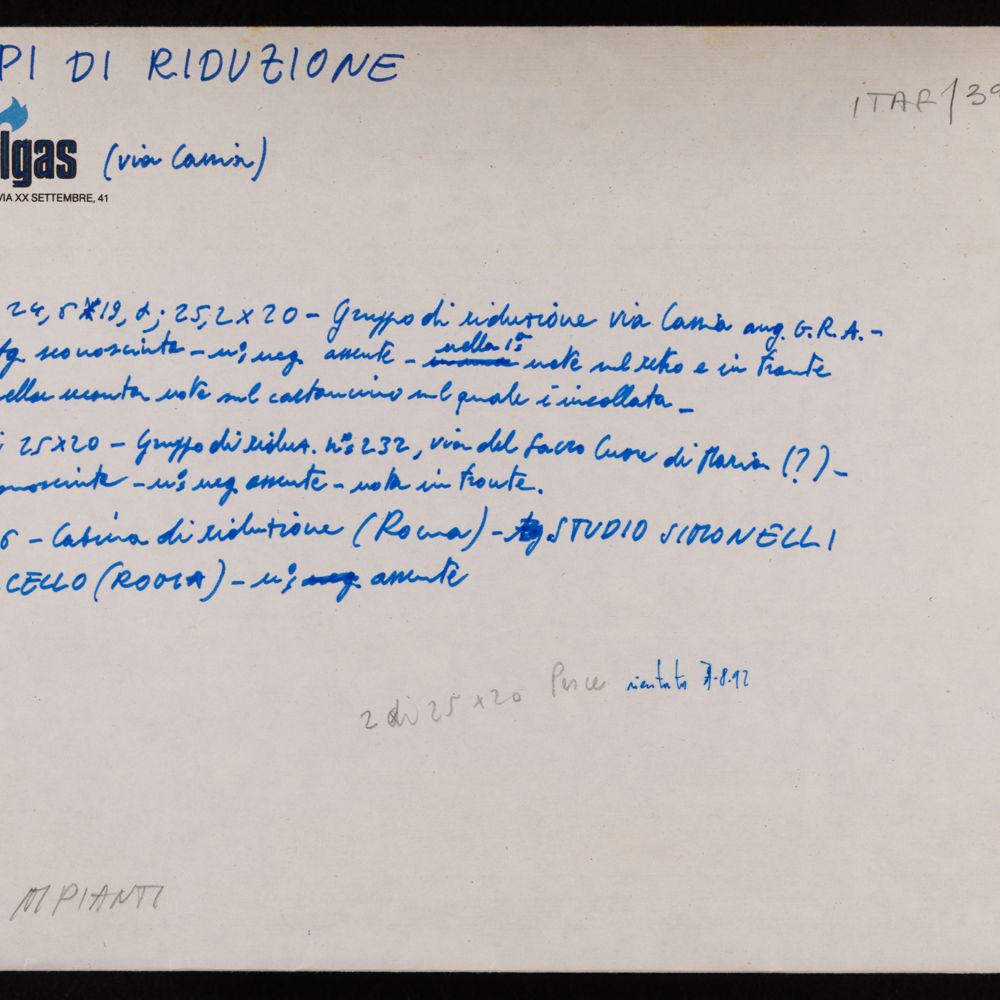 PI DI RIDUZIONE
ITAR/39
lgas (via Cassia)
VIA XX SETTEMBRE, 41
24,5x19,2; 25,2x20 - Gruppo di riduzione via Cassia ang. G.R.A. -
fg. sconosciuto - n° neg. assente - nella 1ª note sul retro e in fronte
nella seconda nota sul cartoncino sul quale è incollata -
25x20 - Gruppo di riduz. n° 232, via del Sacro Cuore di Maria (?) -
onosciuto - n° neg. assente - nota in fronte.
6 - Cabina di riduzione (Roma) - fg. STUDIO SIMONELLI
CELLO (ROMA) - n° neg. assente
2 di 25x20 Pesce rientrato 7-8-92
MPIANTI